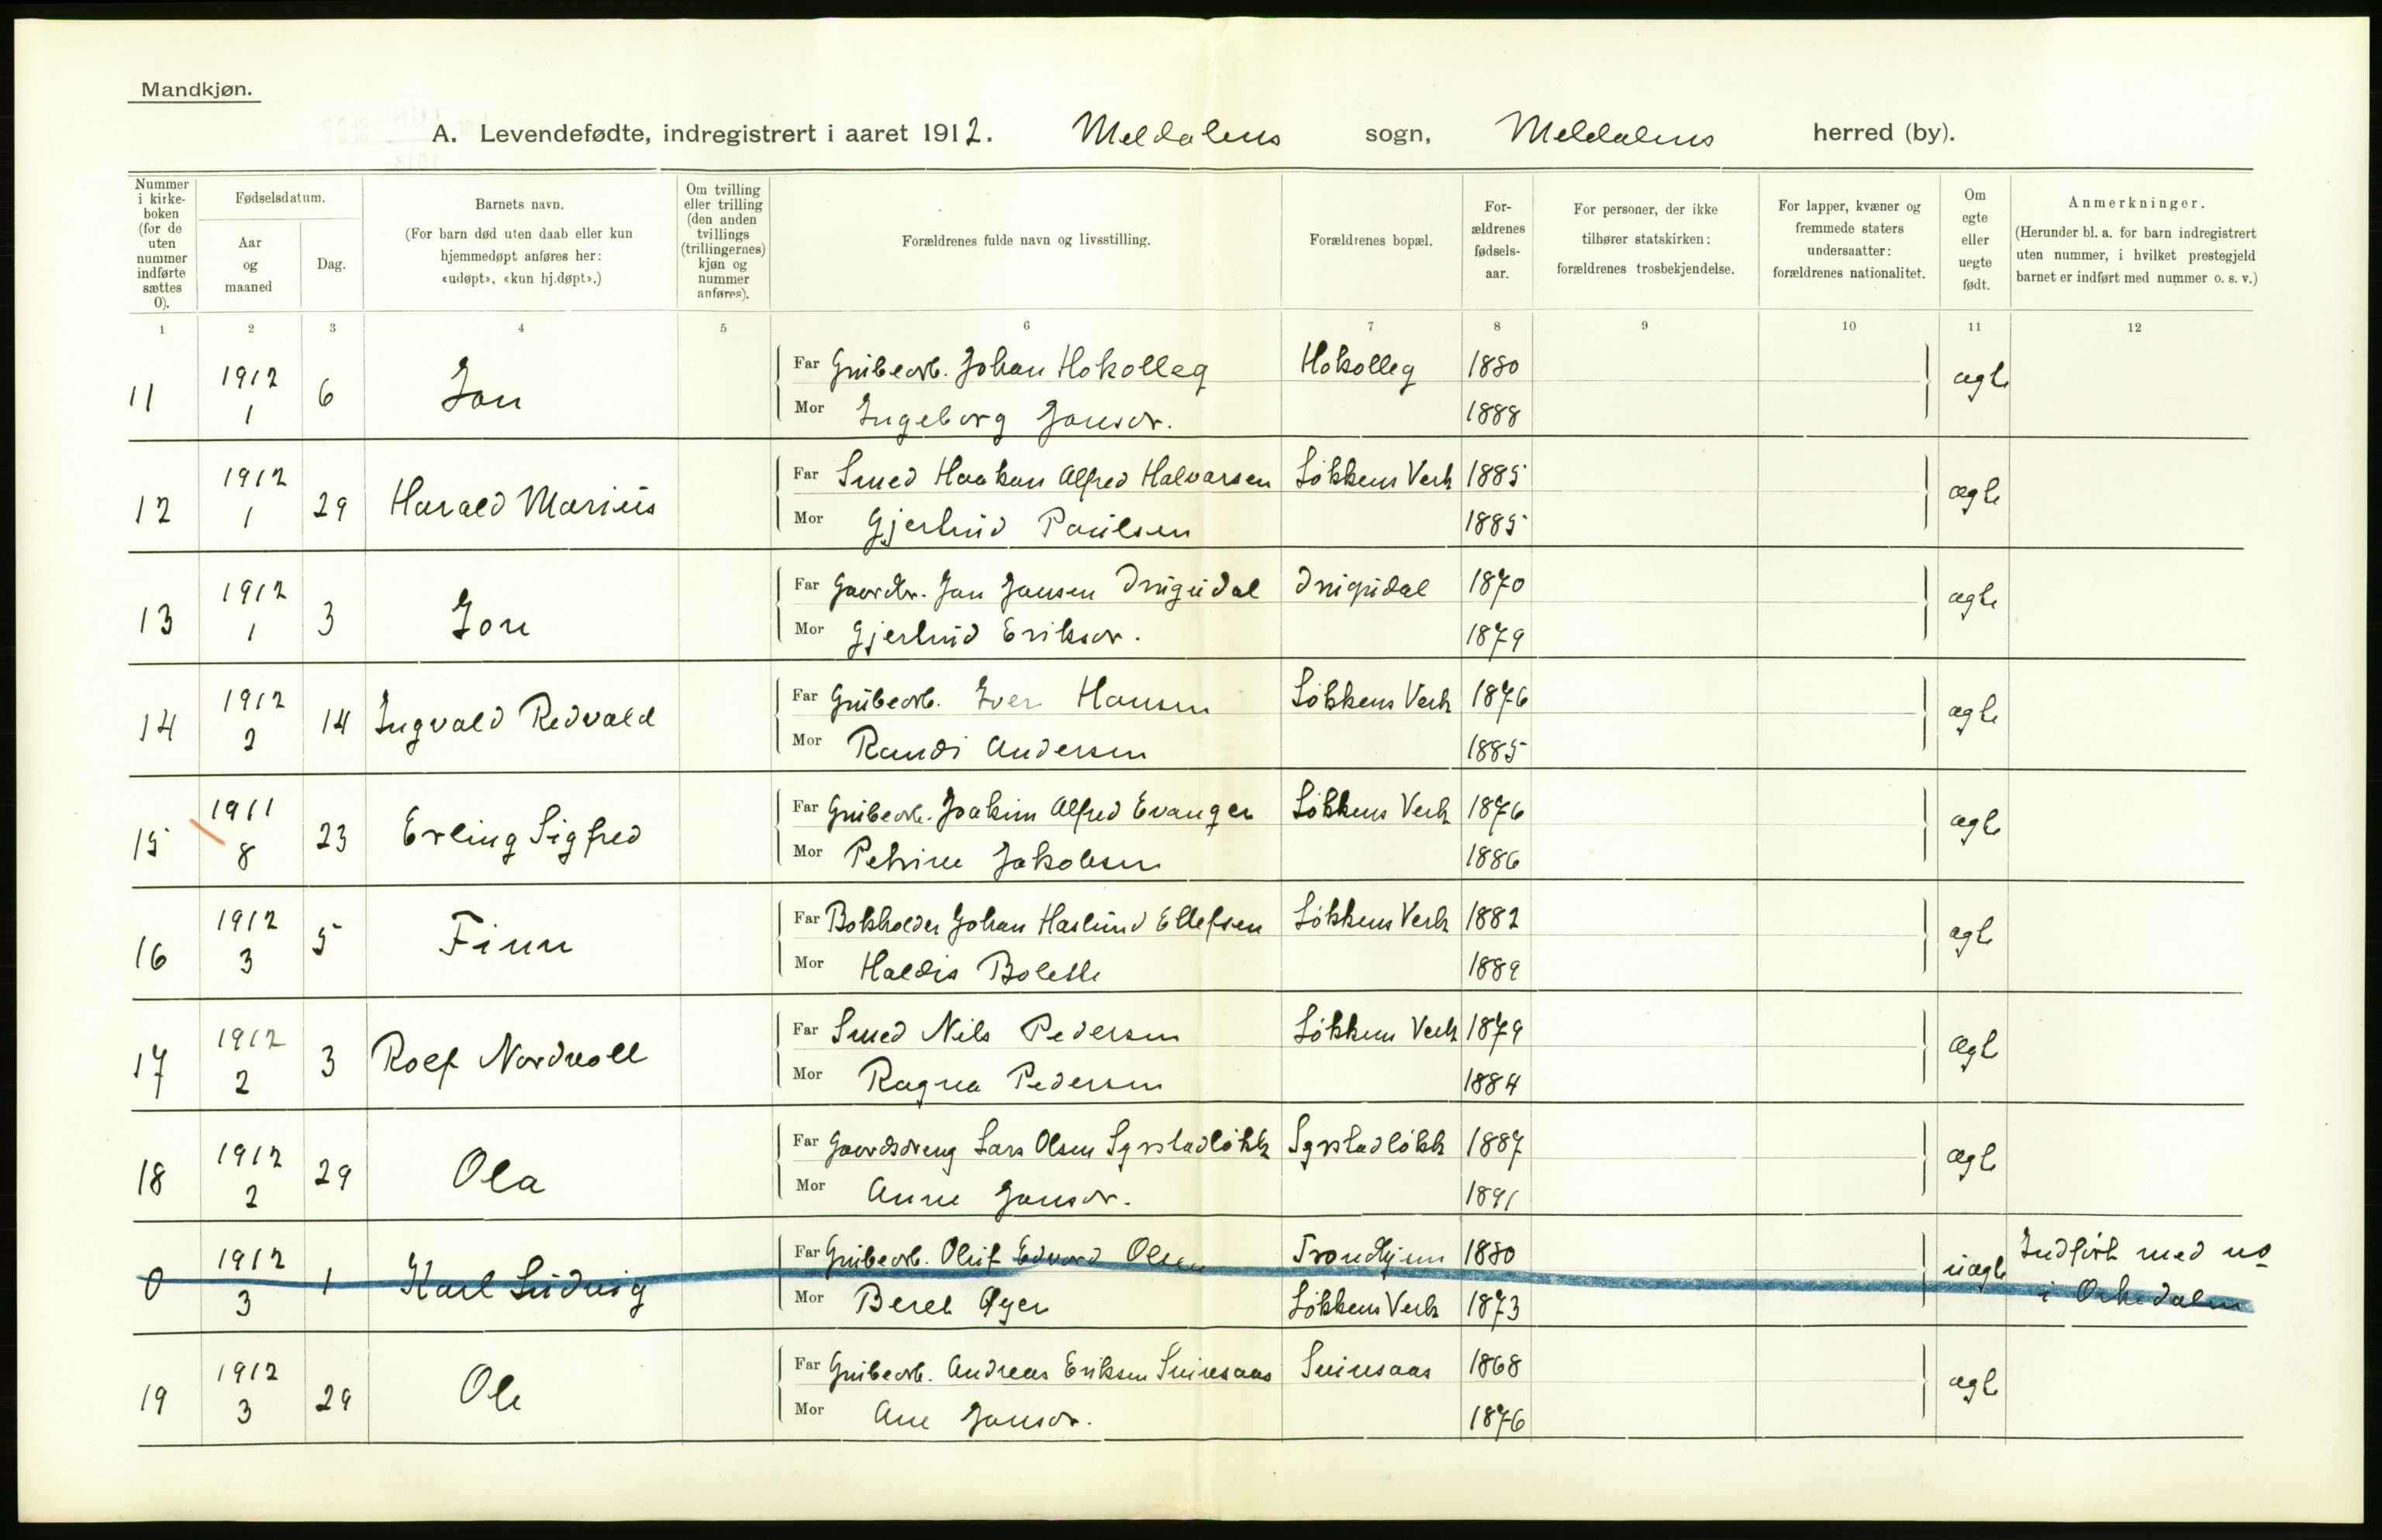 Mandkjøn.
A. Levendefødte, indregistrert i aaret 1912. Meldalens sogn, Meldalens herred (by).
Nummer i kirke-boken (for de uten nummer indførte sættes 0).
Fødselsdatum.
Aar og maaned
Dag.
Barnets navn.
(For barn død uten daab eller kun hjemmedøpt anføres her: «udøpt», «kun hj.døpt».)
Om tvilling eller trilling (den anden tvillings (trillingernes) kjøn og nummer anføres).
Forældrenes fulde navn og livsstilling.
Forældrenes bopæl.
For-ældrenes fødsels-aar.
For personer, der ikke tilhører statskirken: forældrenes trosbekjendelse.
For lapper, kvæner og fremmede staters undersaatter: forældrenes nationalitet.
Om egte eller uegte født.
Anmerkninger.
(Herunder bl. a. for barn indregistrert uten nummer, i hvilket prestegjeld barnet er indført med nummer o. s. v.)
1 2 3 4 5 6 7 8 9 10 11 12
11 1912 1 6 Jon Far Grubearb. Johan Hokolleg Hokolleg 1880 ægte
Mor Ingeborg Jonsdr. 1888
12 1912 1 29 Harald Marius Far Smed Haakon Alfred Halvorsen Løkkens Verk 1885 ægte
Mor Gjertrud Paulsen 1885
13 1912 1 3 Jon Far Gaardbr. Jon Jonsen Drugudal Drugudal 1870 ægte
Mor Gjertrud Eriksdr. 1879
14 1912 2 14 Ingvald Redvald Far Grubearb. Iver Hansen Løkkens Verk 1876 ægte
Mor Randi Andersen 1885
15 1911 8 23 Erling Sigfred Far Grubearb. Joakim Alfred Evanger Løkkens Verk 1876 ægte
Mor Petrine Jakobsen 1886
16 1912 3 5 Finn Far Bokholder Johan Haslund Ellefsen Løkkens Verk 1882 ægte
Mor Haldis Bolette 1889
17 1912 2 3 Rolf Nordvoll Far Smed Nils Pedersen Løkkens Verk 1879 ægte
Mor Ragna Pedersen 1884
18 1912 2 29 Ola Far Gaardsdreng Lars Olsen Syrstadløkk Syrstadløkk 1887 ægte
Mor Anne Jonsdr. 1891
0 1912 3 1 Karl Ludvig Far Grubearb. Oluf Edvard Olsen Trondhjem 1880 uægte Indført med no
Mor Beret Øyen Løkkens Verk 1873 i Orkedalen
19 1912 3 29 Ole Far Grubearb. Andreas Eriksen Snuresaas Snuresaas 1868 ægte
Mor Ane Jonsdr. 1876